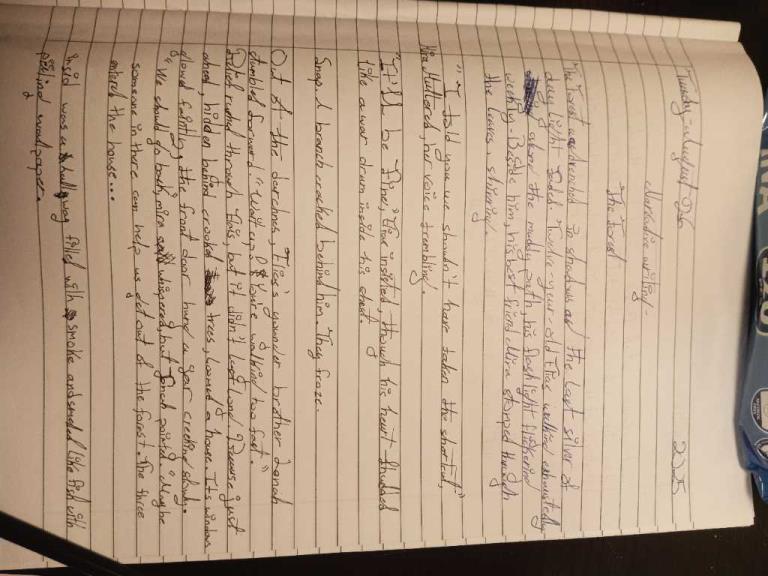 Tuesday - August 26 2025
Narrative writing -
The Forest
The Forest was drenched in shadows as the last silver of
day light faded. Twelve-year-old Elias walked exhaustedly
along the muddy path, his flashlight flickering
weekly. Beside him, his best friend Mira stomped through
the leaves, shivering.
"I told you we shouldn't have taken the shortcut,"
Mira Muttered, her voice trembling.
"It'll be fine," Elias insisted, though his heart thudded
like a war drum inside his chest.
Snap. A branch cracked behind him. They froze.
Out of the darkness, Elias's younger brother Jonah
stumbled forward. "Wait up, you're walking too fast."
Relief rushed through Elias, but it didn't last long. Because just
ahead, hidden behind crooked trees, loomed a house. Its windows
glowed faintly, the front door hung a jar creaking slowly.
"We should go back, mira whispered, but Jonah pointed. "Maybe
someone in there can help us get out of the forest. The three
entered the house...
Inside was a hallway filled with smoke and smelled like fish with
peeling wallpaper.